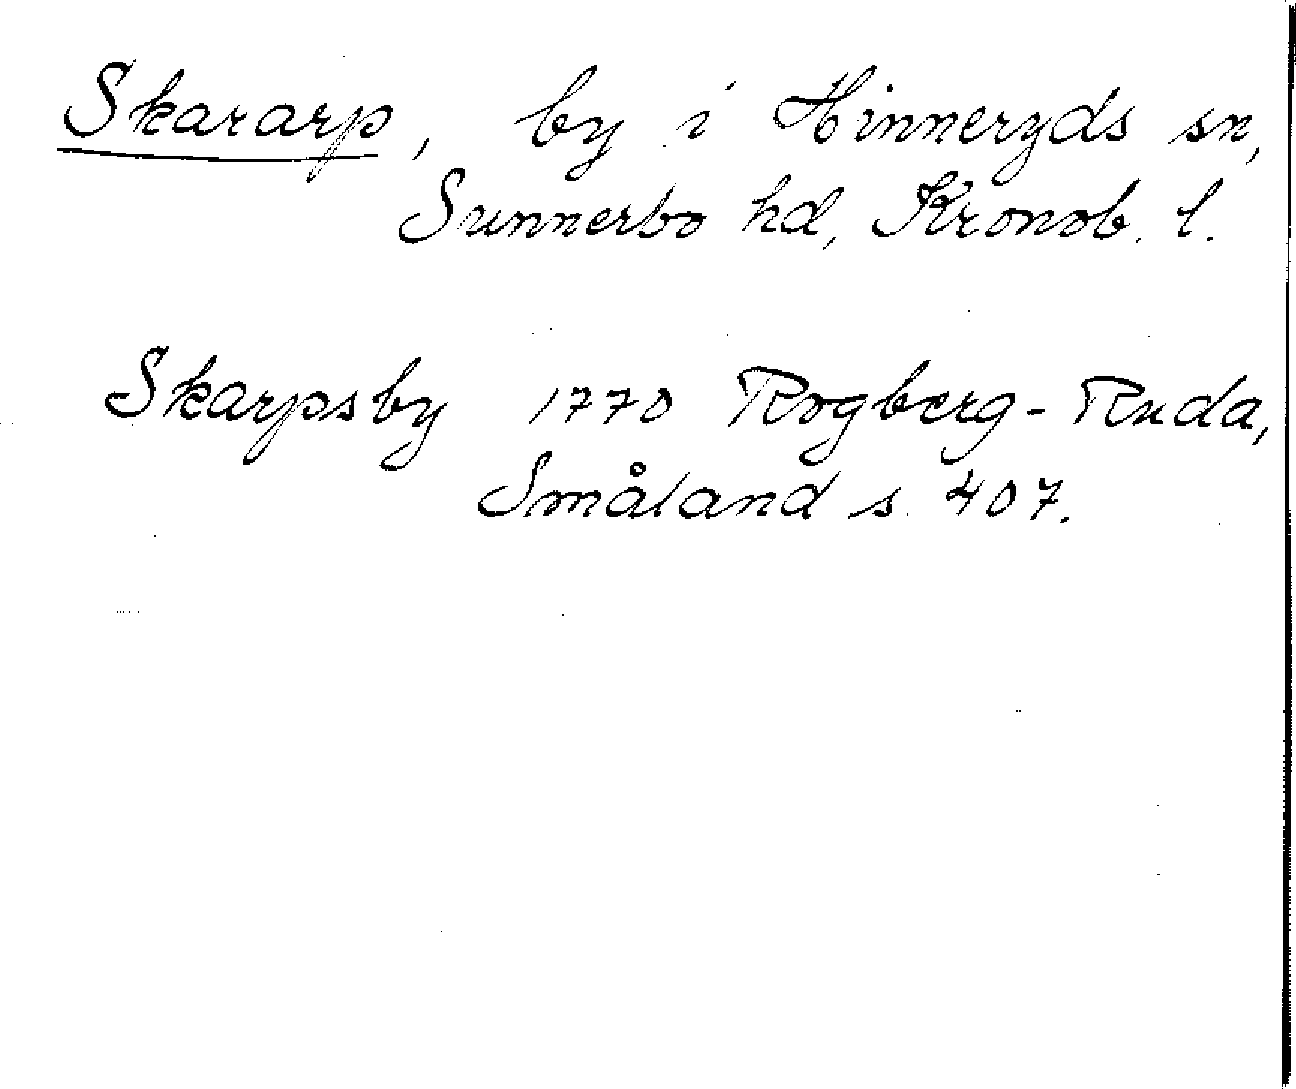 Skararp, by i Hinneryds sn,
Sunnerbo hd, Kronob. l.
Skarpsby 1770 Rogberg-Ruda,
Småland s. 407.